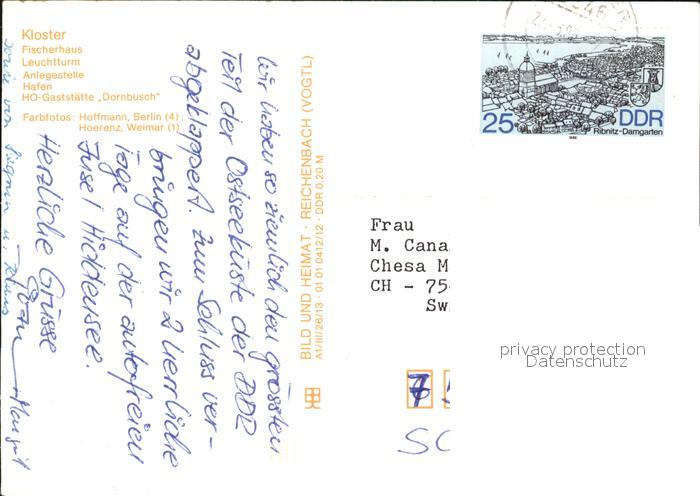 Kloster
Fischerhaus
Leuchtturm
Anlegestelle
Hafen
HO-Gaststätte „Dornbusch"
Farbfotos: Hoffmann, Berlin (4);
Hoerenz, Weimar (1)
Wir haben so ziemlich den grössten
Teil der Ostseeküste der DDR
abgeklappert. Zum Schluss ver-
bringen wir 2 herrliche
Tage auf der autofreien
Insel Hiddensee.
Herzliche Grüsse
Margrit
sowie von
BILD UND HEIMAT · REICHENBACH (VOGTL)
A1/III/26/13 · 01 01 0412/12 · DDR 0,20 M
25
DDR
Ribnitz-Damgarten
1988
Frau
M. Cana
Chesa M
CH - 75
Sw
7
privacy protection
Datenschutz